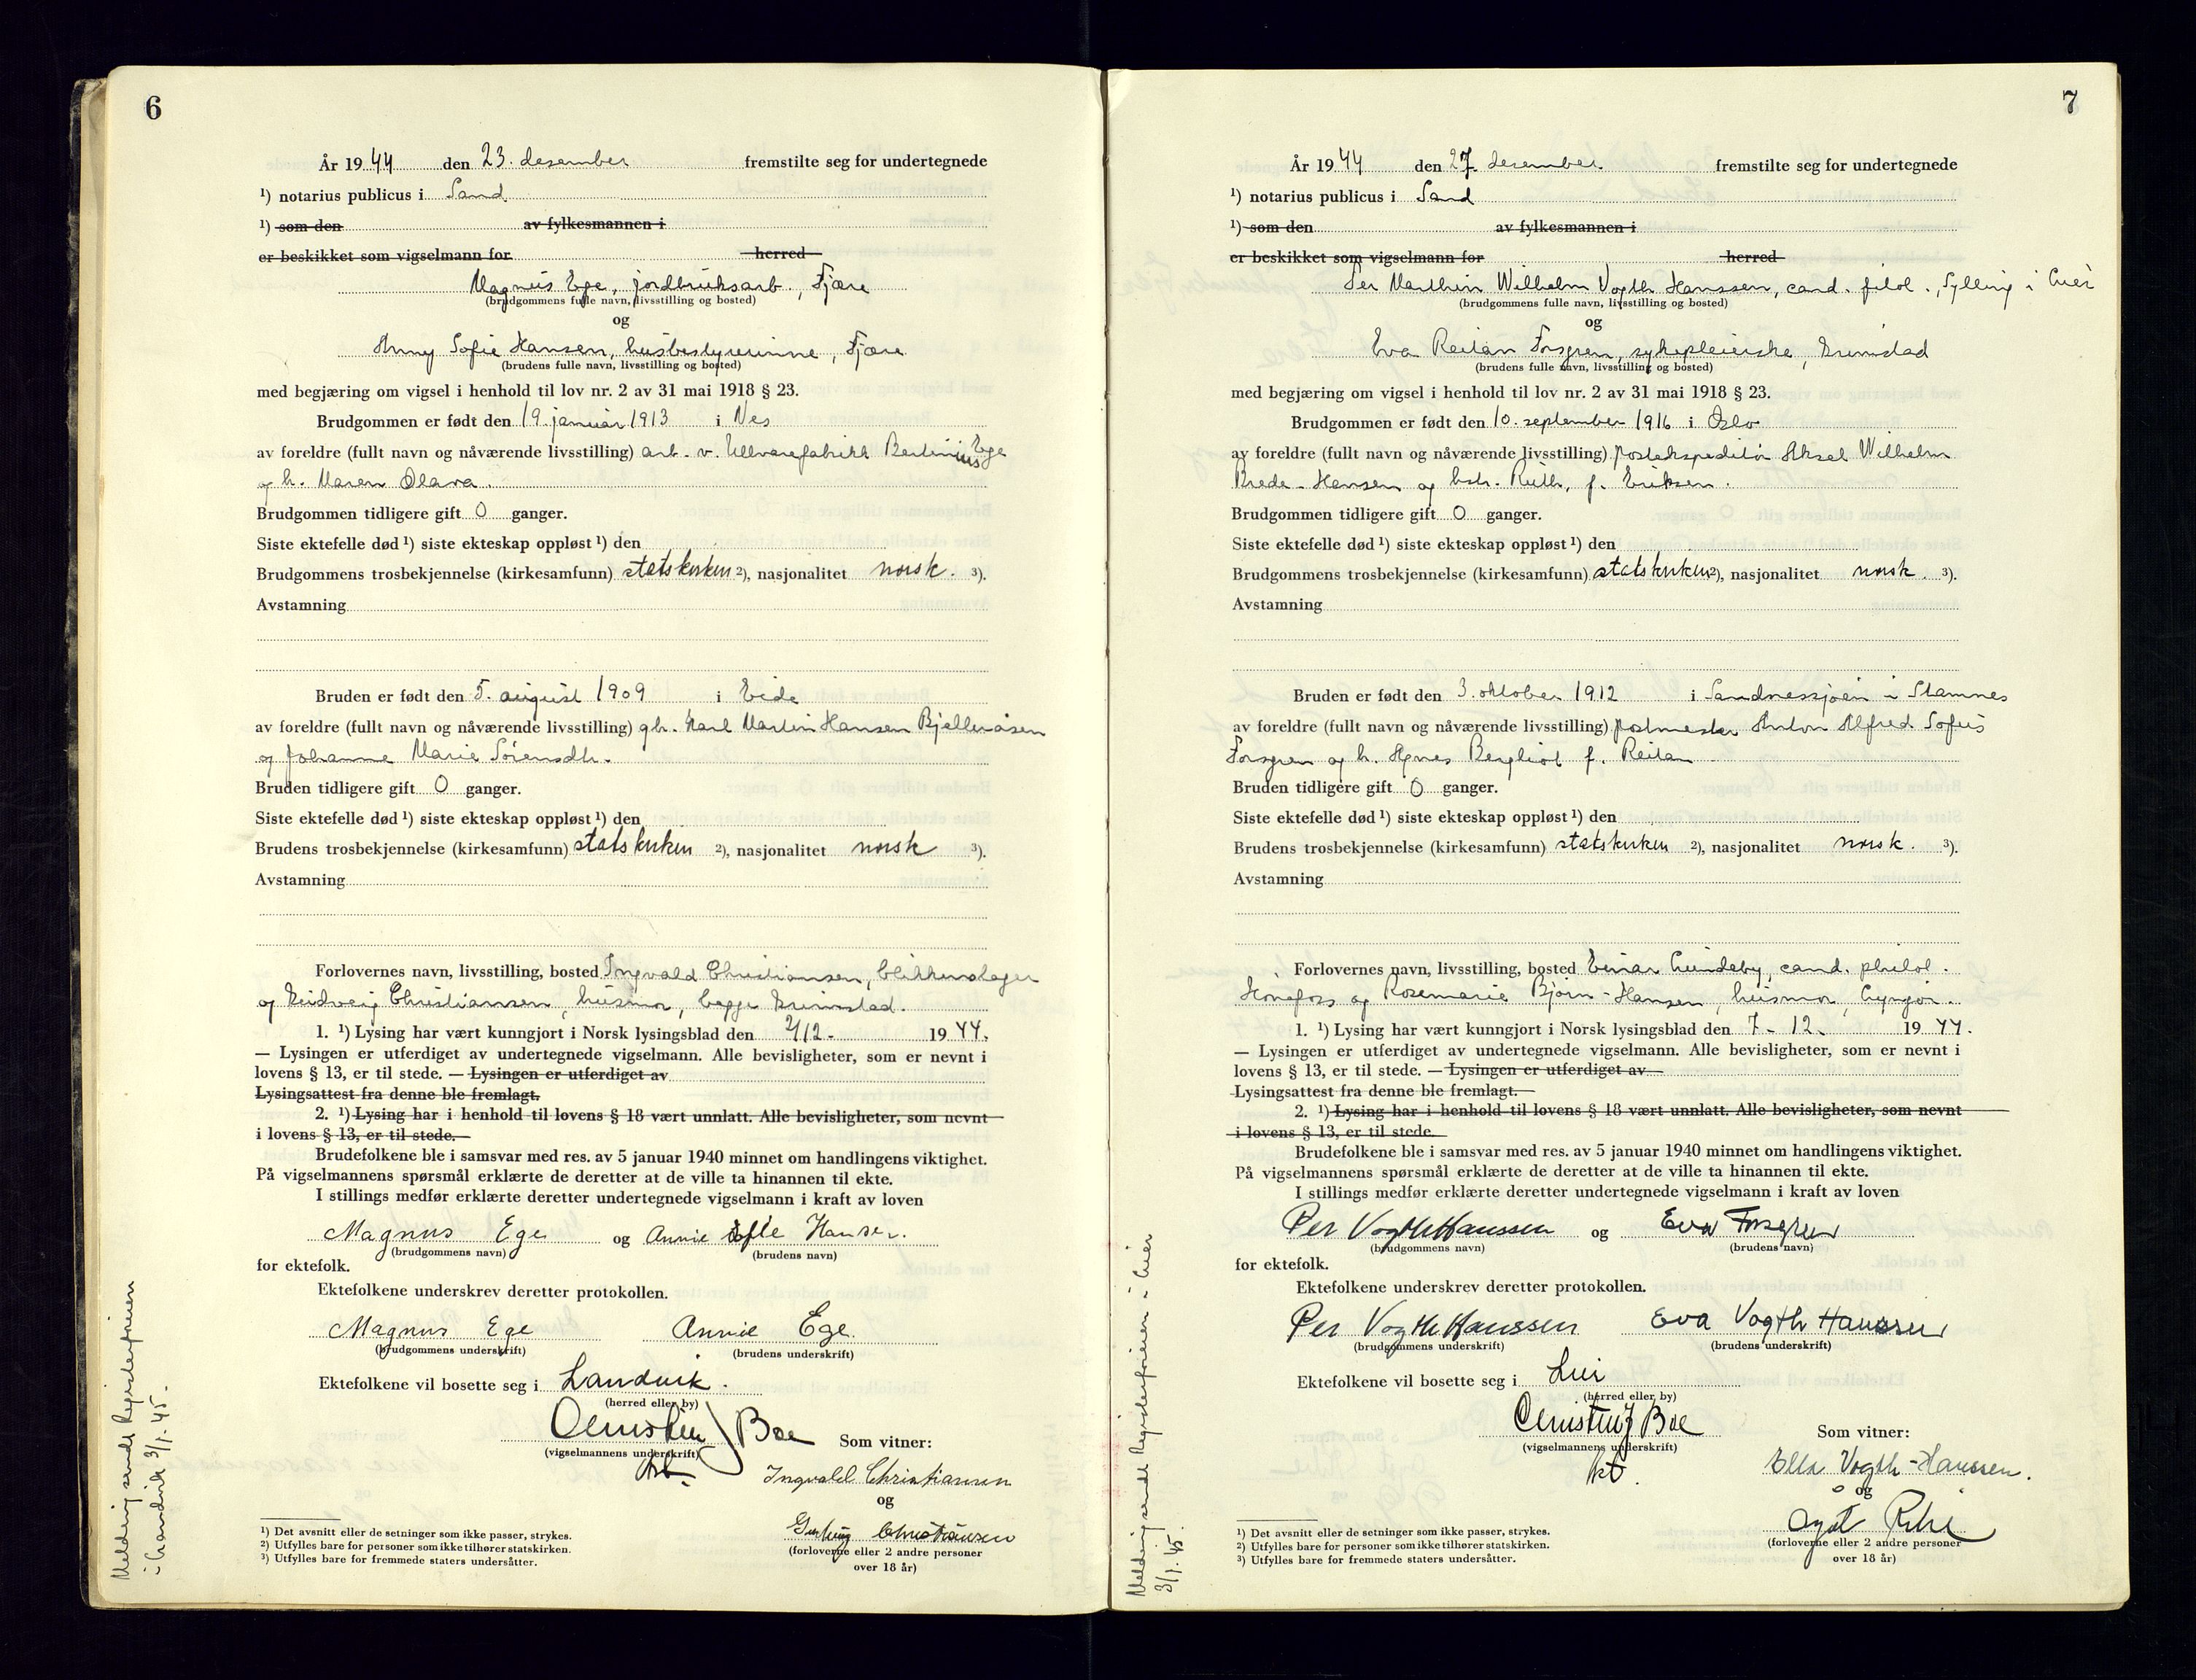 6
År 1944 den 23. desember fremstilte seg for undertegnede
¹) notarius publicus i Sand
¹) som den av fylkesmannen i
er beskikket som vigselmann for herred
Magnus Ege, jordbruksarb., Fjære
(brudgommens fulle navn, livsstilling og bosted)
og
Anny Sofie Hansen, husbestyrerinne, Fjære
(brudens fulle navn, livsstilling og bosted)
med begjæring om vigsel i henhold til lov nr. 2 av 31 mai 1918 § 23.
Brudgommen er født den 19. januar 1913 i Nes
av foreldre (fullt navn og nåværende livsstilling) arb. v. Ullvarefabrikk Bertinius Ege
og h. Maren Olava.
Brudgommen tidligere gift 0 ganger.
Siste ektefelle død ¹) siste ekteskap oppløst ¹) den
Brudgommens trosbekjennelse (kirkesamfunn) statskirken ²), nasjonalitet norsk. ³).
Avstamning
Bruden er født den 5. august 1909 i Eide
av foreldre (fullt navn og nåværende livsstilling) gbr. Karl Martin Hansen Bjelleråsen
og Johanne Marie Sörensdtr.
Bruden tidligere gift 0 ganger.
Siste ektefelle død ¹) siste ekteskap oppløst ¹) den
Brudens trosbekjennelse (kirkesamfunn) statskirken ²), nasjonalitet norsk ³).
Avstamning
Forlovernes navn, livsstilling, bosted Ingvald Christiansen, blikkenslager
og Christiansen, husmor, begge Grimstad.
1. ¹) Lysing har vært kunngjort i Norsk lysingsblad den 2/12- 1944.
— Lysingen er utferdiget av undertegnede vigselmann. Alle bevisligheter, som er nevnt i
lovens § 13, er til stede. — Lysingen er utferdiget av
Lysingsattest fra denne ble fremlagt.
2. ¹) Lysing har i henhold til lovens § 18 vært unnlatt. Alle bevisligheter, som nevnt
i lovens § 13, er til stede.
Brudefolkene ble i samsvar med res. av 5 januar 1940 minnet om handlingens viktighet.
På vigselmannens spørsmål erklærte de deretter at de ville ta hinannen til ekte.
I stillings medfør erklærte deretter undertegnede vigselmann i kraft av loven
Magnus Ege og Annie Hansen.
(brudgommens navn) (brudens navn)
for ektefolk.
Ektefolkene underskrev deretter protokollen.
Magnus Ege Annie Ege.
(brudgommens underskrift) (brudens underskrift)
Ektefolkene vil bosette seg i Landvik.
(herred eller by)
Boe Som vitner:
(vigselmannens underskrift)
Ingvald Christiansen
og
Christiansen
(forloverne eller 2 andre personer
over 18 år)
¹) Det avsnitt eller de setninger som ikke passer, strykes.
²) Utfylles bare for personer som ikke tilhører statskirken.
³) Utfylles bare for fremmede staters undersåtter.
Melding sendt Registerføreren
i Landvik 3/1. 45.
7
År 1944 den 27. desember fremstilte seg for undertegnede
¹) notarius publicus i Sand
¹) som den av fylkesmannen i
er beskikket som vigselmann for herred
Per Marthin Wilhelm Vogth Hanssen, cand. filol., Sylling i Lier
(brudgommens fulle navn, livsstilling og bosted)
og
Eva Reitan Forsgren, sykepleierske, Grimstad
(brudens fulle navn, livsstilling og bosted)
med begjæring om vigsel i henhold til lov nr. 2 av 31 mai 1918 § 23.
Brudgommen er født den 10. september 1916 i Oslo
av foreldre (fullt navn og nåværende livsstilling) postekspeditör Aksel Wilhelm
Brede-Hansen og hstr. Ruth, f. Eriksen.
Brudgommen tidligere gift 0 ganger.
Siste ektefelle død ¹) siste ekteskap oppløst ¹) den
Brudgommens trosbekjennelse (kirkesamfunn) statskirken ²), nasjonalitet norsk. ³).
Avstamning
Bruden er født den 3. oktober 1912 i Sandnessjöen i Stamnes
av foreldre (fullt navn og nåværende livsstilling) postmester Anton Alfred Sofus
Forsgren og h. Agnes Bergliot f. Reitan
Bruden tidligere gift 0 ganger.
Siste ektefelle død ¹) siste ekteskap oppløst ¹) den
Brudens trosbekjennelse (kirkesamfunn) statskirken ²), nasjonalitet norsk. ³).
Avstamning
Forlovernes navn, livsstilling, bosted Einar Lundeby, cand. philol.
Hönefoss og Rosemarie Bjørn-Hansen, husmor, Lyngör.
1. ¹) Lysing har vært kunngjort i Norsk lysingsblad den 7- 12- 1944.
— Lysingen er utferdiget av undertegnede vigselmann. Alle bevisligheter, som er nevnt i
lovens § 13, er til stede. — Lysingen er utferdiget av
Lysingsattest fra denne ble fremlagt.
2. ¹) Lysing har i henhold til lovens § 18 vært unnlatt. Alle bevisligheter, som nevnt
i lovens § 13, er til stede.
Brudefolkene ble i samsvar med res. av 5 januar 1940 minnet om handlingens viktighet.
På vigselmannens spørsmål erklærte de deretter at de ville ta hinannen til ekte.
I stillings medfør erklærte deretter undertegnede vigselmann i kraft av loven
Per Vogth Hanssen og Eva Forsgren
(brudgommens navn) (brudens navn)
for ektefolk.
Ektefolkene underskrev deretter protokollen.
Per Vogth Hanssen Eva Vogth Hanssen
(brudgommens underskrift) (brudens underskrift)
Ektefolkene vil bosette seg i Lier
(herred eller by)
Boe Som vitner:
(vigselmannens underskrift)
Ella Vogth-Hanssen.
og
(forloverne eller 2 andre personer
over 18 år)
¹) Det avsnitt eller de setninger som ikke passer, strykes.
²) Utfylles bare for personer som ikke tilhører statskirken.
³) Utfylles bare for fremmede staters undersåtter.
Melding sendt Registerføreren i Lier
3/1. 45.